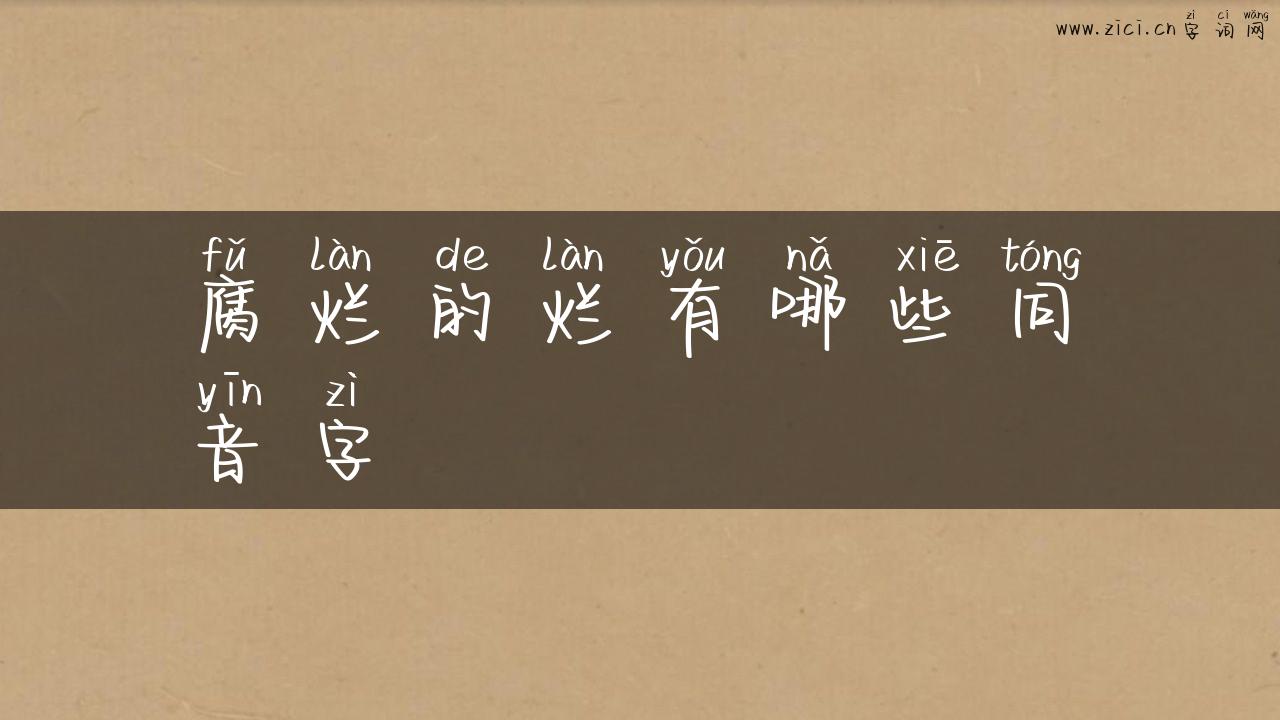 zì cí wǎng
www.zici.cn 字 词 网
fǔ làn de làn yǒu nǎ xiē tóng
腐 烂 的 烂 有 哪 些 同
yīn zì
音 字